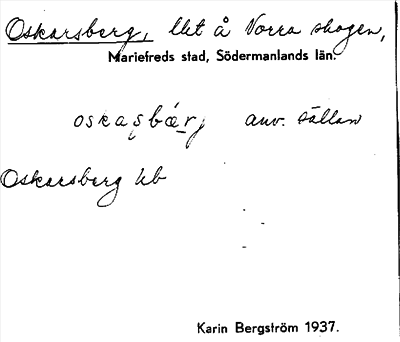 Oskarsberg, lht å Norra skogen,
Mariefreds stad, Södermanlands län.
oskasbærj anv. sällan
Oskarsberg hb
Karin Bergström 1937.